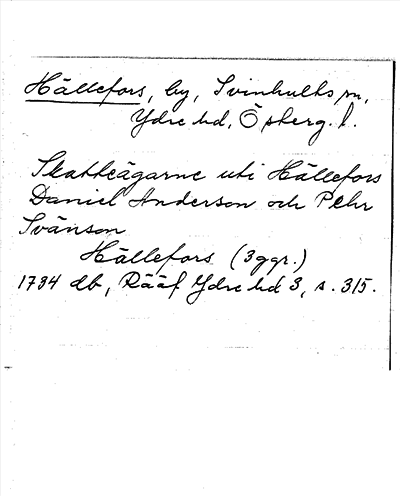 Hällefors, by, Svinhults sn,
Ydre hd, Östberg. l.
Skatteägarne uti Hällefors
Daniel Anderson och Pehr
Svänson
Hällefors (3 ggr.)
1734 db, Rääf Ydre hd 3, s. 315.